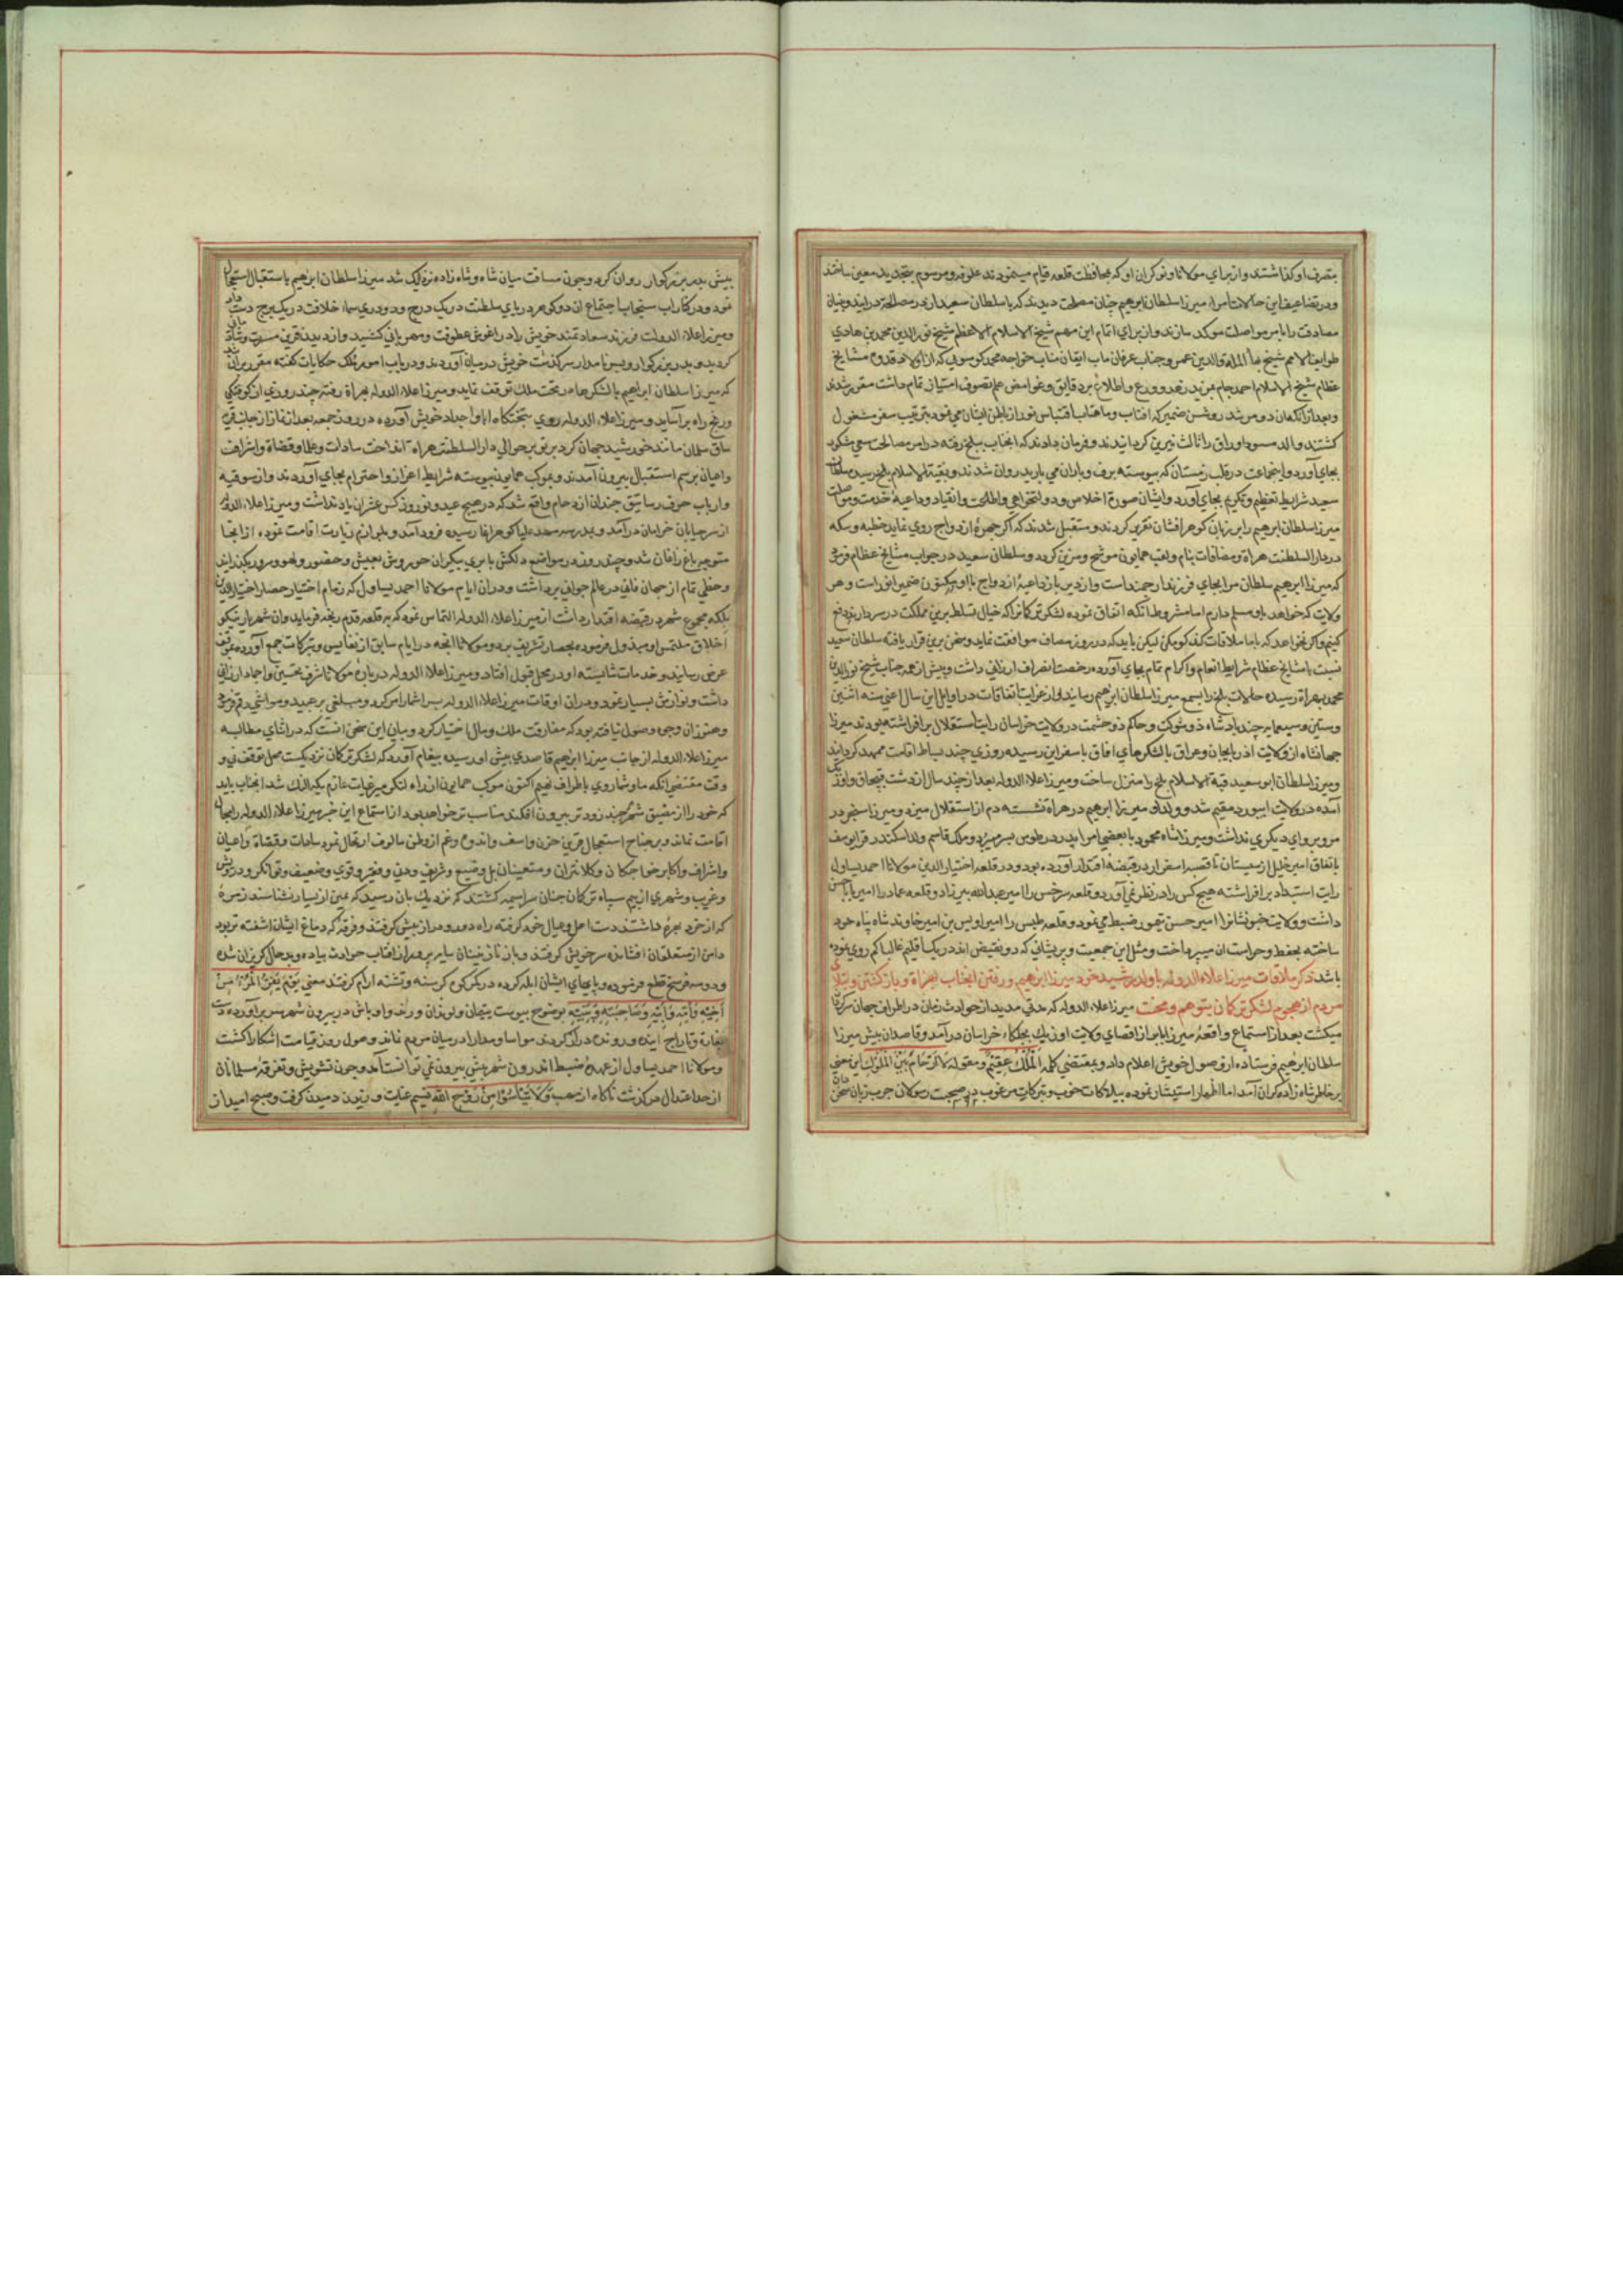 بتصرف او کذاشتند و از برای مولانا و نوکران او که بمحافظت قلعه قیام مینمودند علوفه و مرسوم بتجدید معین ساختند
و در تضاعیف این حالات امرا میرزا سلطان ابرهیم چنان مصلحت دیدند که با سلطان سعید از در مصالحه درایند و بنیان
مصادقت را بامر مواصلت موکد سازند و از برای اتمام این مهم شیخ الاسلام الاعظم شیخ نور الدین محمد بن هادی
طوایف الامم شیخ بهأ المله والدین عمر و جناب عرفان ماب ایقان مناب خواجه محمد کوسویی که از اولاد قدوه مشایخ
عظام شیخ الاسلام احمد جام بمزید زهد و ورع و اطلاع بر دقایق و غوامض علم تصوف امتیاز تمام داشت مقرر شدند
و بعد از انکه ان دو مرشد روشن ضمیر که افتاب و ماهتاب اقتباس نور از باطن ایشان می نمود بترتیب سفر مشغول
کشتند والد مسود اوراق را ثالث نیرین کردانیدند و فرمان دادند که انجناب ببلخ رفته در امر مصالحت سعی مشکور
بجای آورد و اینجماعت در قلب زمستان که پیوسته برف و باران می بارید روان شدند و بقبة الاسلام بلخ رسیدند سلطان
سعید شرایط تعظیم و تکریم بجای آورد و ایشان صورة اخلاص و دولتخواهی و اطاعت و انقیاد و داعیه خدمت و مواصلت
میرزا سلطان ابرهیم را بر زبان کوهر افشان تقریر کردند و متقبل شدند که اکر چهرهٔ ازدواج روی نماید خطبه و سکه
در دار السلطنت هراة و مضافات بنام و لقب همایون موشح و مزین کردد و سلطان سعید در جواب مشایخ عظام فرمود
که میرزا ابرهیم سلطان مرا بجای فرزند ارجمند است و از دیر باز داعیهٔ ازدواج با او مکنون ضمیر انور است و هر
ولایت که خواهد باو مسلم دارم اما مشروط بانکه اتفاق نموده لشکر ترکمانرا که خیال تسلط برین مملکت در سر دارند دفع
کنیم و اکر نخواهد که با ما ملاقات کند کو مکن لیکن باید که در روز مصاف موافقت نماید و سخن برین قرار یافته سلطان سعید
نسبت بامشایخ عظام شرایط انعام و اکرام تمام بجای آورده رخصت انصراف ارزانی داشت و پیش از همه جناب شیخ نور الدین
محمد بهراة رسیده حالات بلخ را بسمع میرزا سلطان ابرهیم رسانید و از غرایب اتفاقات در اوایل این سال اعنی سنه اثنین
وستین وسبعمایه چند پادشاه ذو شوکت و حاکم ذو حشمت در ولایت خراسان رایت استقلال برافراشته بودند میرزا
جهانشاه از ولایت اذربایجان و عراق با لشکرهای افاق باسفراین رسیده روزی چند بساط اقامت ممهد کردانید
و میرزا سلطان ابو سعید قبة الاسلام بلخ را منزل ساخت و میرزا علاء الدوله بعد از چند سال از دشت قبچاق و اوزبک
آمده در ولایت ابیورد مقیم شد و ولد او میرزا ابرهیم در هراة نشسته دم از استقلال میزد و میرزا سنجر در
مرو پروای دیکری نداشت و میرزا شاه محمود با بعضی امرا بدر در طوس بسر میبرد و ملک قاسم ولد اسکندر قرا یوسف
باتفاق امیر خلیل از سیستان تا قصبه اسفزار در قبضه اقتدار آورده بود و در قلعه اختیار الدین مولانا احمد یساول
رایت استبداد برافراشته هیچ کس را در نظر نمی آورد و قلعه سرخس را امیر عبدالله پیرزاد و قلعه عماد را امیر باباحسن
داشت و ولایت خبوشانرا امیر حسن تیمور ضبط می نمود و قلعه طبس را امیر اویس بن امیر خاوند شاه پناه خود
ساخته بحفظ و حراست ان میپرداخت و مثل این جمعیت و پریشانی که دو نقیض اند در یک اقلیم غالبا کم روی نموده
باشد ذکر ملاقات میرزا علاء الدوله باولد رشید خود میرزا ابرهیم و رفتن انجناب بهراة و باز کشتن و ابتلای
مردم از هجوم لشکر ترکمان بتوهم و محنت میرزا علاء الدوله که مدتی مدید از حوادث زمان در اطراف جهان سرکردان
میکشت بعد از استماع واقعهٔ میرزا بابر از اقصای ولایت اوزبک بجلکاء خراسان در آمد و قاصدان پیش میرزا
سلطان ابرهیم فرستاده از وصول خویش اعلام داد و بمقتضی کلمه المُلکُ عقیمٌ و مقوله لا ارحام بین الملوک این معنی
بر خاطر شاه زاده کران آمد اما اظهار استبشار نموده بیلاکات خوب و تبرکات مرغوب در صحبت رسولان چرب زبان سخن دان
پیش پدر بزرکوار روان کرد و چون مسافت میان شاه و شاه زاده نزدیک شد میرزا سلطان ابرهیم باستقبال استعجال
نمود و در کنار اب سنجاب اجتماع ان دو کوهر دریای سلطنت در یک درج و دو دری سماء خلافت در یک برج دست داد
و میرزا علاء الدولت فرزند سعادتمند خویش را در اغوش عطوفت و مهربانی کشید و از دیدن قرین مسرت و شادمانی
کردید و پدر بزرکوار و پسر نامدار سرکذشت خویش در میان آوردند و در باب امور ملک حکایات کفته مقرر بران شد
که میرزا سلطان ابراهیم با لشکرها در تخت ملک توقف نماید و میرزا علاء الدوله بهراة رفته چند روزی از کوفتکی
و رنج راه بر آساید و میرزا علاء الدوله روی بتختکاه اباواجداد خویش آورده در روز جمعه بعد از نماز از جانب قریه
ساق سلمان مانند خورشید جهان کرد پرتو بر حوالی دار السلطنت هراة انداخت سادات و علما و قضاة و اشراف
و اعیان برسم استقبال بیرون آمدند و بموکب همایون پیوسته شرایط اعزاز و احترام بجای آوردند و از سوقیه
و ارباب حرف رساتیق چندان ازدحام واقع شد که در هیچ عید و نوروز کس عشر ان یاد نداشت و میرزا علاء الدوله
از سر خیابان خراسان در آمد و بمدرسه مهد علیا کوهر اغا رسیده فرود آمد و بلوازم زیارت اقامت نمود از انجا
متوجه باغ زاغان شد و چند روز در مواضع دلکش با پری پیکران حور وش بعیش و حضور و لهو و سرور بکذرانید
و حظی تمام از جهان فانی در عالم جوانی برداشت و دران ایام مولانا احمد یساول که زمام اختیار حصار اختیار الدین
بلکه مجموع شهر در قبضه اقتدار داشت از میرزا علاء الدوله التماس نمود که بقلعه قدم رنجه فرماید و ان شهریار نیکو
اخلاق ملتمس او مبذول فرموده بحصار تشریف برد و مولانا انچه در ایام سابق از نفایس و تبرکات جمع آورده بموقف
عرض رسانید و خدمات شایسته او در محل قبول افتاد و میرزا علاء الدوله در بارهٔ مولانا شرف تحسین و احماد ارزانی
داشت و نوازش بسیار نمود و دران اوقات میرزا علاء الدوله بسر اشمار امر کرد و مبلغی بر عبید و مواشی رقم فرمود
و هنوز ان وجوه وصول نیافته بود که مفارقت ملک و مال اختیار کرد و بیان این سخن انست که در اثنای مطالبه
میرزا علاء الدوله از جانب میرزا ابرهیم قاصدی پیش او رسیده پیغام آورد که لشکر ترکمان نزدیکست محل توقف نی و
وقت مقتضی انکه ما و شما روی باطراف نهیم اکنون موکب همایون از راه لنکر میر غیاث عازم یکه الک شد انجناب باید
که خود را از مضیق شهر هرچند زودتر بیرون افکند مناسب تر خواهد بود از استماع این خبر میرزا علاء الدوله را مجال
اقامت نماند و بر جناح استعجال قرین حزن و اسف و اندوه و غم از وطن مالوف ارتحال نمود سادات و قضاة و اعیان
و اشراف و اکابر خواجکان و کلانتران و متعینان بل وضیع و شریف و دنی و فقیر و قوی و ضعیف و توانکر و درویش
و غریب و شهری از بیم سپاه ترکمان چنان سراسیمه کشتند که نزدیک بان رسید که یمین از یسار نشناسند زمرهٔ
که از خرد بهرهٔ داشتند دست اهل و عیال خود کرفته راه دور و دراز پیش کرفتند و فرقهٔ که دماغ ایشان اشفته تر بود
دامن از متعلقان افشانده سر خویش کرفتند و باز نازنینان سایه پرورد از افتاب حوادث پیاده و بد حال کریزان شده
و دو سه فرسخ قطع فرموده و پایهای ایشان ابله کرده در هر کوی کرسنه و تشنه ارام کرفتند معنی یَوْمَ یَفِرُّ المَرْءُ مِنْ
اَخِیْهِ وَاُمِّهِ وَاَبِیْهِ وَصَاحِبَتِهِ وَبَنِیْهِ بوضوح پیوست یتیمان و لوندان و رنود و اوباش در بیرون شهر سر برآورده دست
بغارة و تاراج آینده و رونده دراز کردند مواسا و مدارا در میان مردم نماند و هول روز قیامت اشکارا کشت
و مولانا احمد یساول از عهده ضبط اندرون شهر پیش بیرون نمی توانست آمد و چون تشویش و تفرقهٔ مسلمانان
از حد اعتدال درکذشت ناکاه از مهب وَلَا تَیْأَسُوْا مِنْ رَوْحِ اللّٰهِ نسیم عنایت وزیدن کرفت و صبح امید از